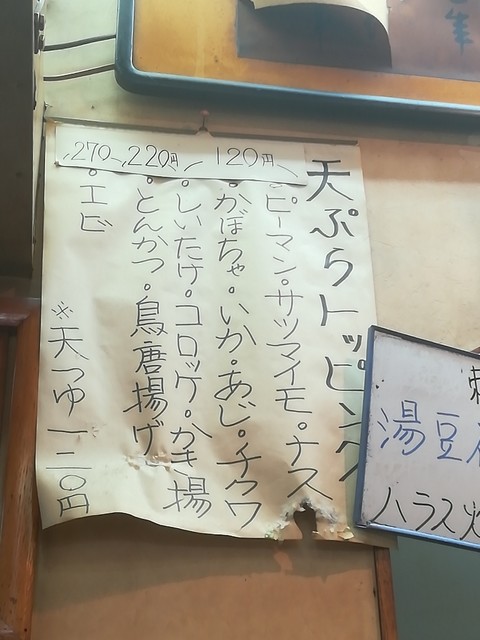 天ぷらトッピング
120円
・ピーマン・サツマイモ・ナス
・かぼちゃ・いか・あじ・チクワ
・しいたけ・コロッケ・かき揚
220円
・とんかつ・鳥唐揚げ
270
・エビ
※天つゆ一二〇円
湯豆
ハラス